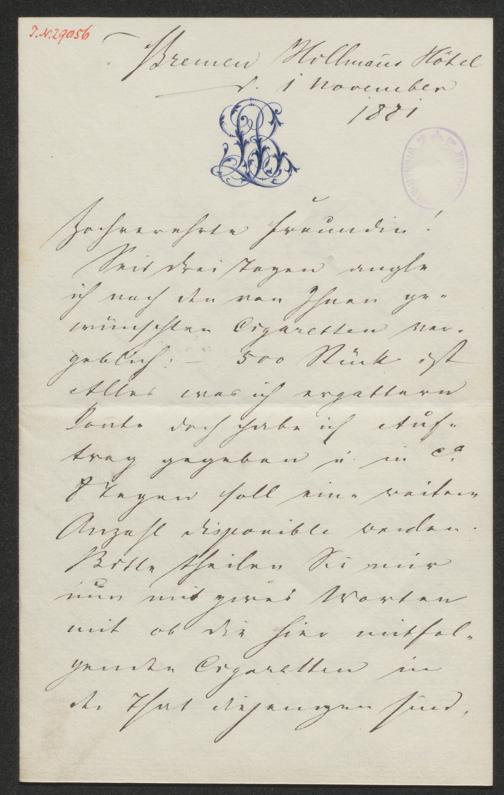 J.N. 29056
Bremen Hillmans Hôtel
d. 1 November
1881
Hochverehrte Freundin!
Seit drei Tagen angle
ich nach den von Ihnen ge-
wünschten Cigaretten ver-
geblich. – 500 Stück ist
Alles was ich ergattern
konte doch habe ich Auf-
trag gegeben u. in ca.
8 Tagen soll eine weitere
Anzahl disponible werden.
Bitte theilen Sie mir
nun mit zwei Worten
mit ob die hier mitfol-
genden Cigaretten in
der That diejenigen sind,